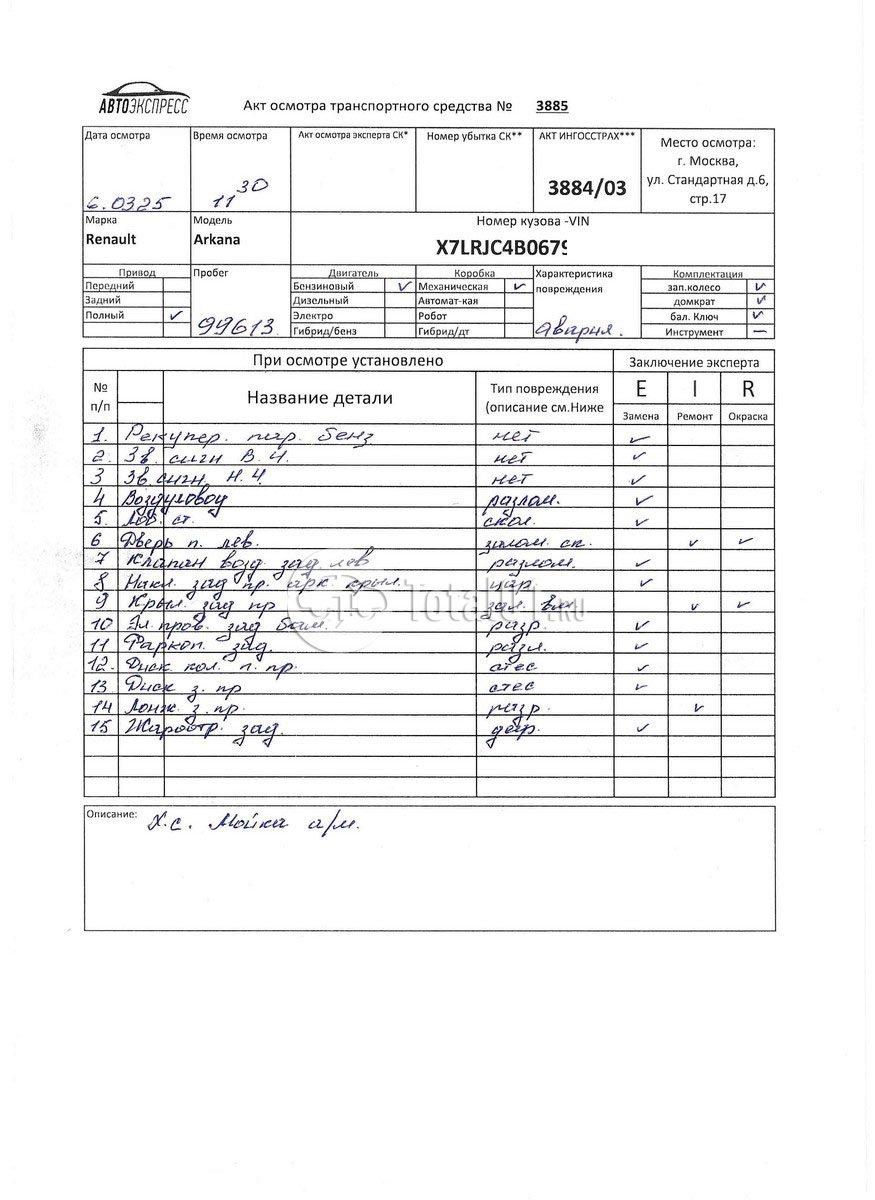 АВТОЭКСПРЕСС
Акт осмотра транспортного средства № 3885
Дата осмотра Время осмотра Акт осмотра эксперта СК* Номер убытка СК** АКТ ИНГОССТРАХ*** Место осмотра:
г. Москва,
ул. Стандартная д.6,
стр.17
6.0325 11 30 3884/03
Марка Модель Номер кузова -VIN
Renault Arkana X7LRJC4B0679
Привод Пробег Двигатель Коробка Характеристика Комплектация
Передний Бензиновый ✓ Механическая ✓ повреждения зап.колесо ✓
Задний Дизельный Автомат-кая домкрат ✓
Полный ✓ Электро Робот бал. Ключ ✓
99613 Гибрид/бенз Гибрид/дт авария. Инструмент —
При осмотре установлено Заключение эксперта
№ п/п Название детали Тип повреждения (описание см.Ниже E I R
Замена Ремонт Окраска
1. Рекупер. пар. бенз нет ✓
2. Зв. сигн В.Ч. нет ✓
3 Зв сигн. Н.Ч. нет ✓
4 Воздуховод разлом. ✓
5. Лоб. ст. скол. ✓
6 Дверь п. лев. залом. ск. ✓ ✓
7 Клапан возд. зад лев разлом. ✓
8 Накл. зад пр. арк. крыл. цар ✓
9 Крыл. зад пр зал. вм ✓ ✓
10 Эл. пров. зад бам. разр. ✓
11 Фаркоп. зад. разл. ✓
12. Диск кол. п. пр. стес ✓
13 Диск з. пр стес ✓
14 Лонж. з. пр. разр. ✓
15 Жароотр. зад. деф. ✓
Описание: Х.с. Мойка а/м.
TotalO1.RU